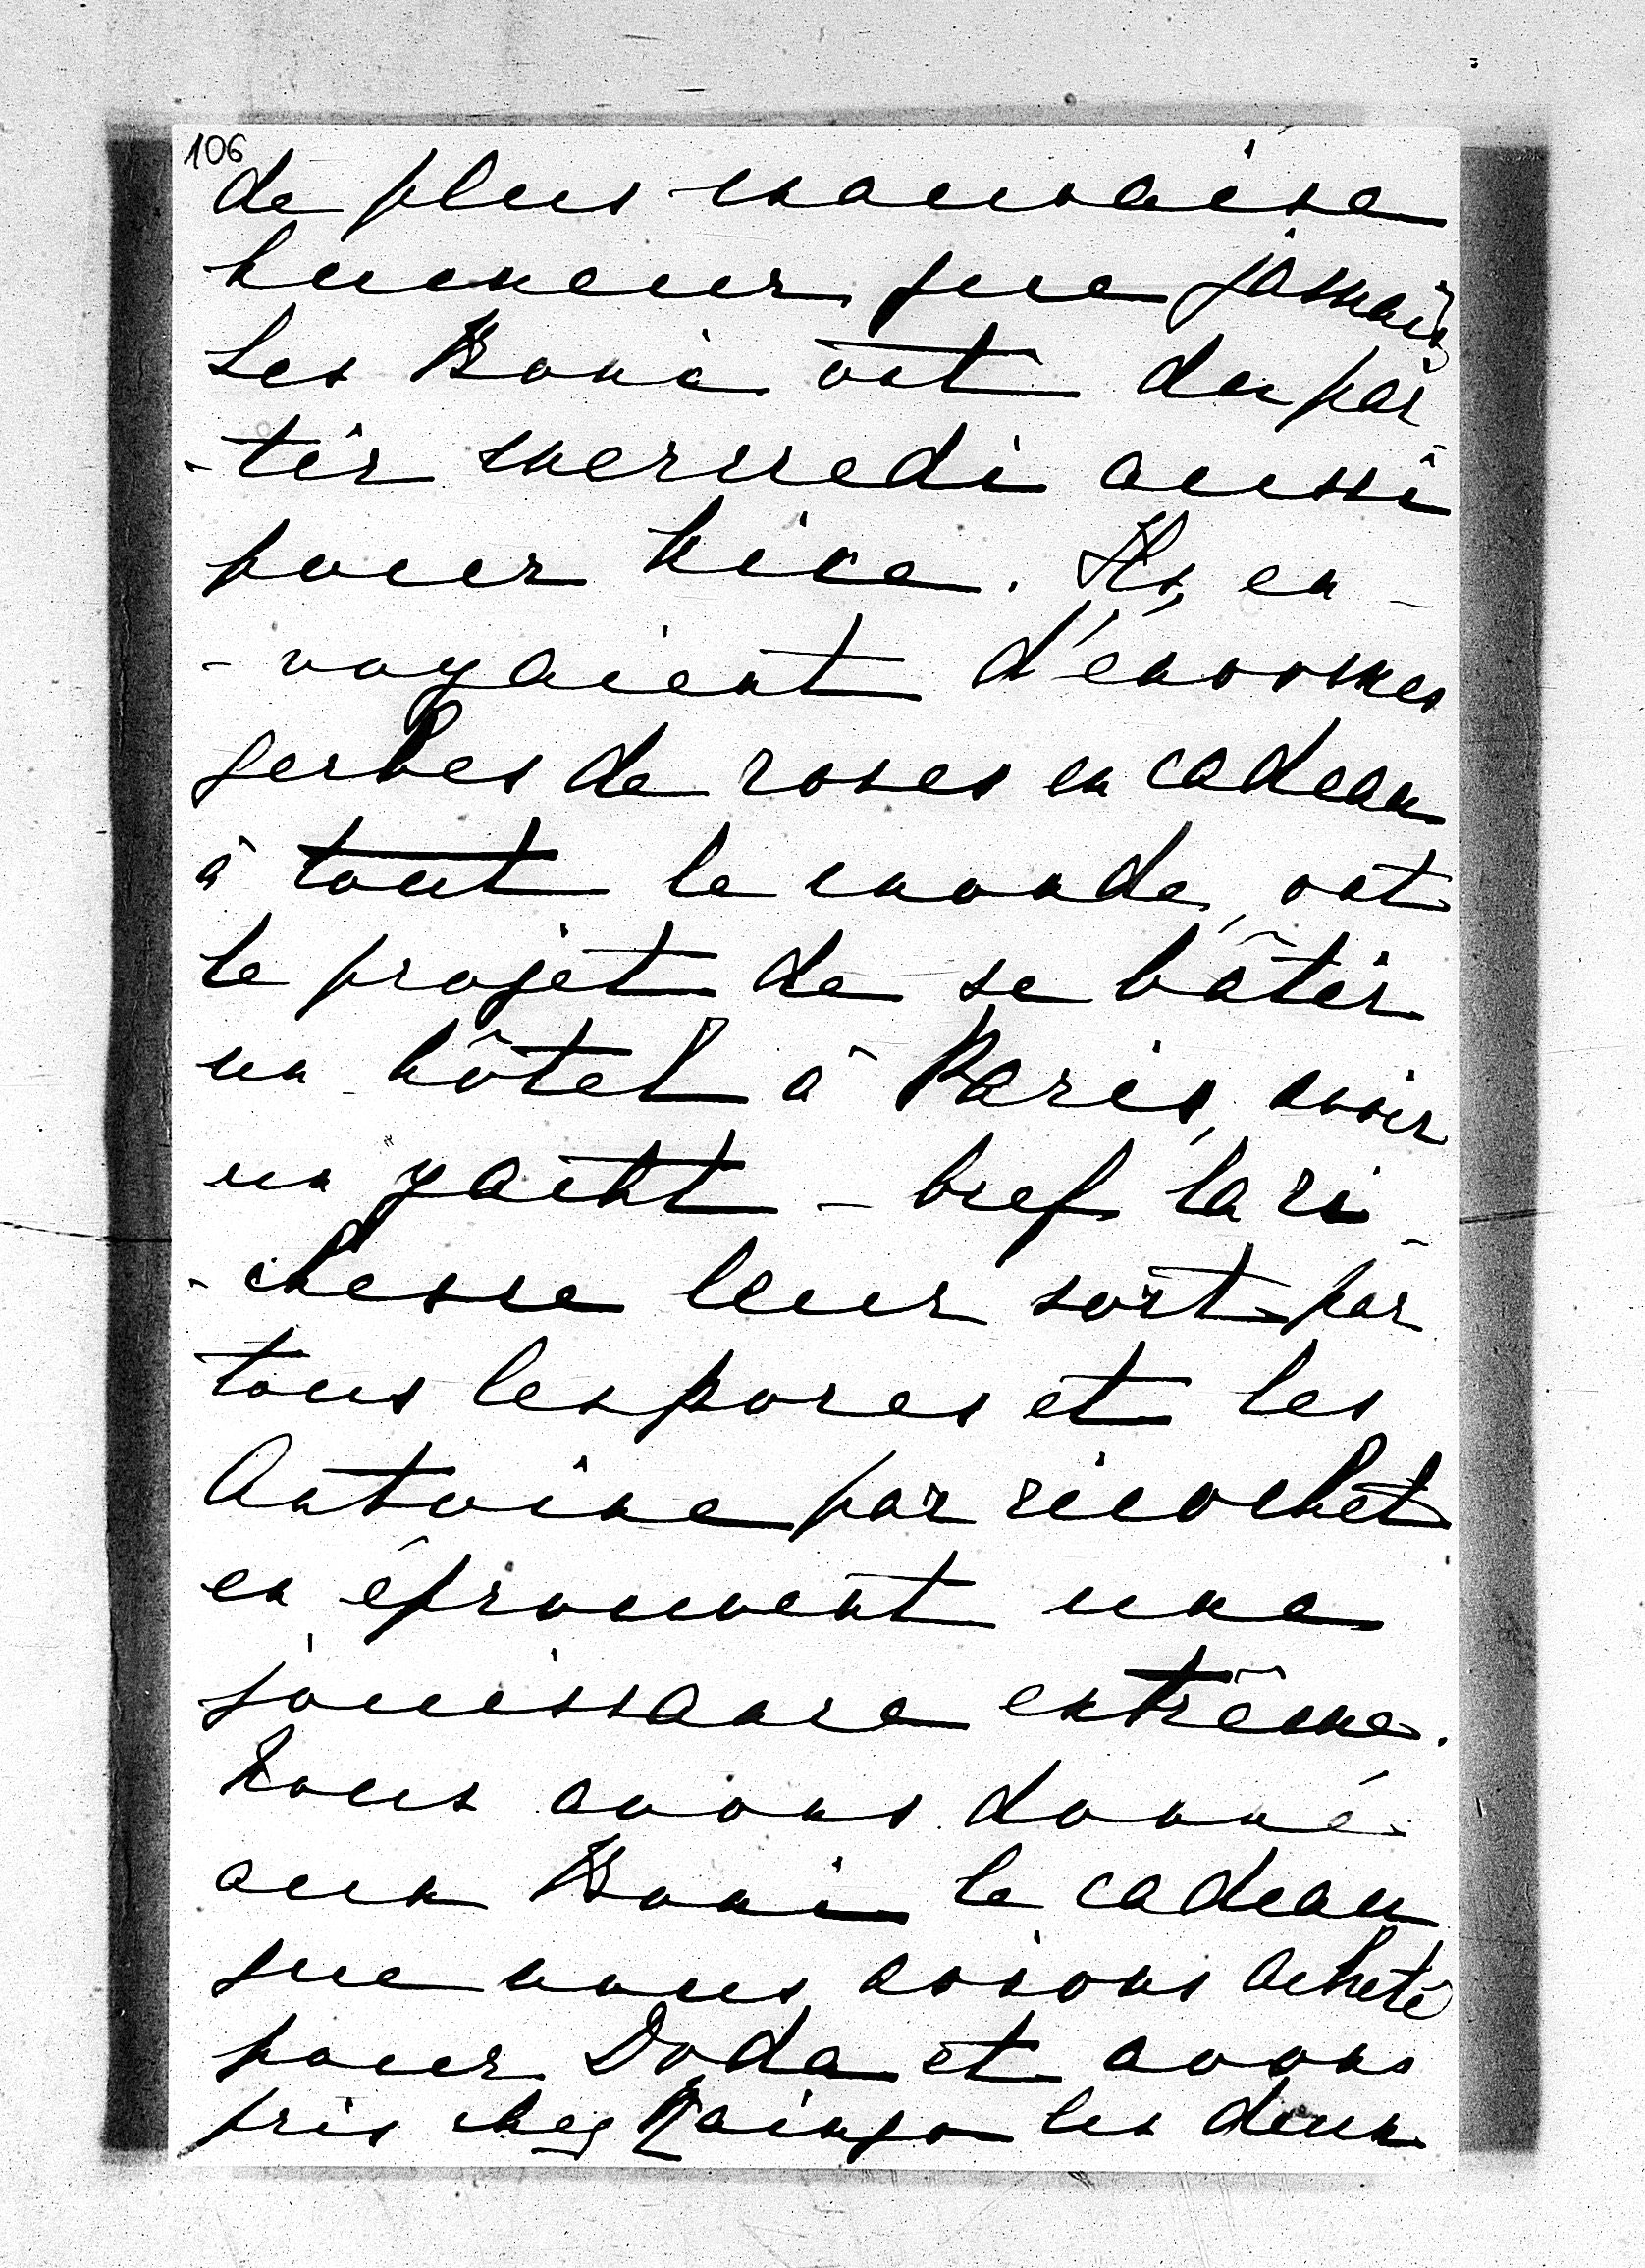 106
de plus mauvaise
humeur que jamais
Les Boni ont du par
-tir mercredi aussi
pour Nice. Ils en-
-voyaient d'énormes
gerbes de roses en cadeau
à tout le monde, ont
le projet de se bâtir
un hôtel à Paris, avoir
un yacht - bref la ri-
-chesse leur sort par
tous les pores et les
Antoine par ricochet
en éprouvent une
jouissance extrême.
Nous avons donné
aux Boni le cadeau
que nous avions acheté
pour Doda et avons
pris chez Raingo les deux